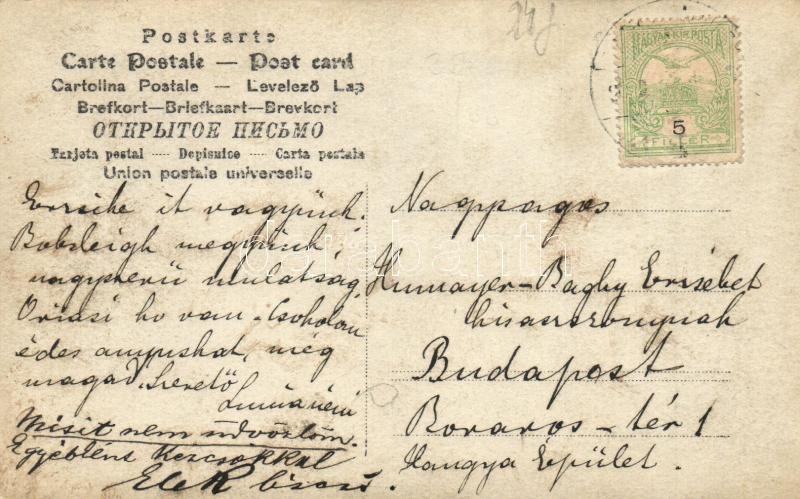 Postkarte
Carte Postale — Post card
Cartolina Postale — Levelező Lap
Brefkort—Briefkaart—Brevkort
ОТКРЫТОЕ ПИСЬМО
Tarjeta postal ---- Dopisnice ---- Carta postala
Union postale universelle
MAGYAR KIR. POSTA
5
FILLÉR
Erzsike it vagyunk.
Bobsleigh megyünk
nagyszerü mulatság
Oriási hó van. Csokolom
édes anyuskat, még
magad. Szerető
Misit nem üdvözlöm.
Egyébként kézcsókkal
Elek
Nagyságos
Humayer-Bagby Erzsébet
kisasszonynak
Budapest
Boraros-tér 1
Hangya Épület.
darabanth